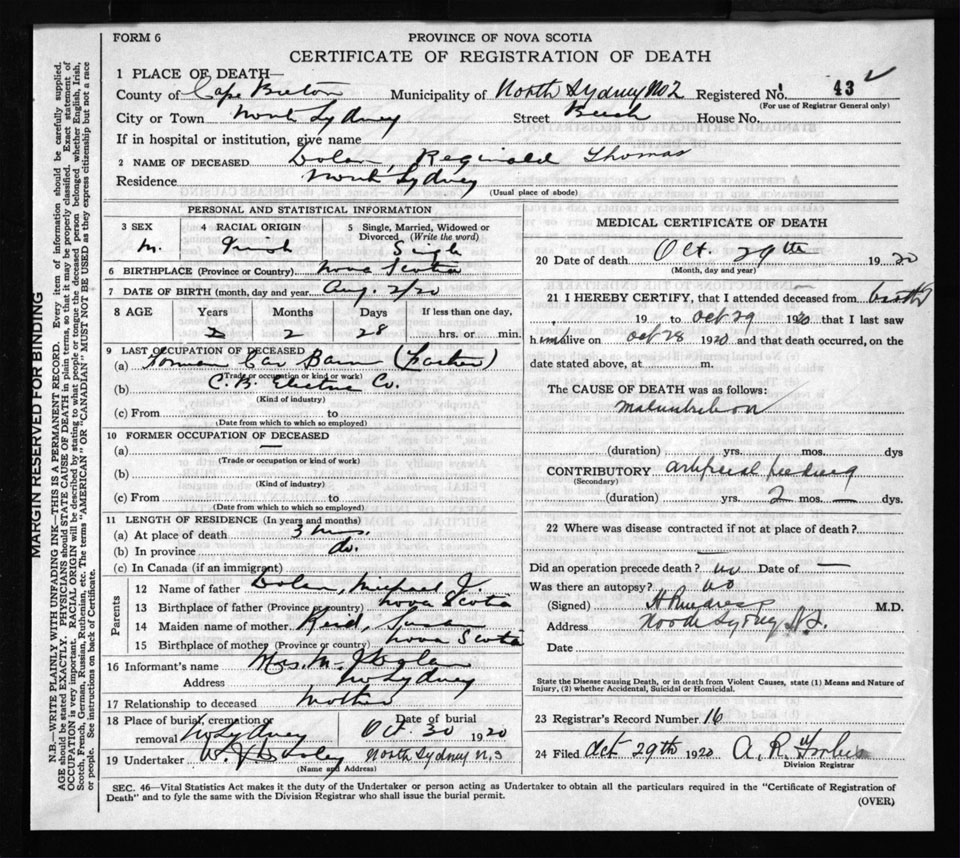 FORM 6
PROVINCE OF NOVA SCOTIA
CERTIFICATE OF REGISTRATION OF DEATH
1 PLACE OF DEATH—
County of Cape Breton Municipality of North Sydney No 2 Registered No. 43
(For use of Registrar General only)
City or Town North Sydney Street Beach House No.
If in hospital or institution, give name
2 NAME OF DECEASED Dolan, Reginald Thomas
Residence North Sydney
(Usual place of abode)
PERSONAL AND STATISTICAL INFORMATION
3 SEX 4 RACIAL ORIGIN 5 Single, Married, Widowed or Divorced (Write the word)
M. Irish Single
6 BIRTHPLACE (Province or Country) Nova Scotia
7 DATE OF BIRTH (month, day and year) Aug. 2/20
8 AGE Years Months Days If less than one day,
2 28 hrs. or min.
9 LAST OCCUPATION OF DECEASED
(a) Foreman Car Barn (Father)
(Trade or occupation or kind or work)
(b) C. B. Electric Co.
(Kind of industry)
(c) From to
(Date from which to which so employed)
10 FORMER OCCUPATION OF DECEASED
(a) —
(Trade or occupation or kind of work)
(b)
(Kind of industry)
(c) From to
(Date from which to which so employed)
11 LENGTH OF RESIDENCE (In years and months)
(a) At place of death 3 mos.
(b) In province do.
(c) In Canada (if an immigrant)
Parents
12 Name of father Dolan, Michael J.
13 Birthplace of father (Province or Country) Nova Scotia
14 Maiden name of mother Reid, Susan
15 Birthplace of mother (Province or country) Nova Scotia
16 Informant's name Mrs. M. J. Dolan
Address No Sydney
17 Relationship to deceased Mother
18 Place of burial, cremation or removal N Sydney Date of burial Oct. 30 1920
19 Undertaker North Sydney N.S
(Name and Address)
MEDICAL CERTIFICATE OF DEATH
20 Date of death Oct. 29th 1920
(Month, day and year)
21 I HEREBY CERTIFY, that I attended deceased from birth
19 to Oct 29 1920 that I last saw
h im alive on oct 28 1920 and that death occurred, on the
date stated above, at m.
The CAUSE OF DEATH was as follows:
Malnutrition
(duration) yrs. mos. dys
CONTRIBUTORY artificial feeding
(Secondary)
(duration) yrs. 2 mos. — dys.
22 Where was disease contracted if not at place of death?
Did an operation precede death? no Date of —
Was there an autopsy? no
(Signed) M.D.
Address North Sydney N.S.
Date
State the Disease causing Death, or in death from Violent Causes, state (1) Means and Nature of
Injury, (2) whether Accidental, Suicidal or Homicidal.
23 Registrar's Record Number 16
24 Filed Oct 29th 1920 A. R. Forbes
Division Registrar
SEC. 46—Vital Statistics Act makes it the duty of the Undertaker or person acting as Undertaker to obtain all the particulars required in the "Certificate of Registration of
Death" and to fyle the same with the Division Registrar who shall issue the burial permit.
(OVER)
MARGIN RESERVED FOR BINDING
N.B.—WRITE PLAINLY WITH UNFADING INK—THIS IS A PERMANENT RECORD. Every item of information should be carefully supplied.
AGE should be stated EXACTLY. PHYSICIANS should STATE CAUSE OF DEATH in plain terms, so that it may be properly classified. Exact statement of
OCCUPATION is very important. RACIAL ORIGIN will be described by stating to what people or tongue the deceased person belonged whether English, Irish,
Scotch, French, German, Russian, Ruthenian, etc. The terms "AMERICAN" OR "CANADIAN" MUST NOT BE USED as they express citizenship but not a race
or people. See instructions on back of Certificate.